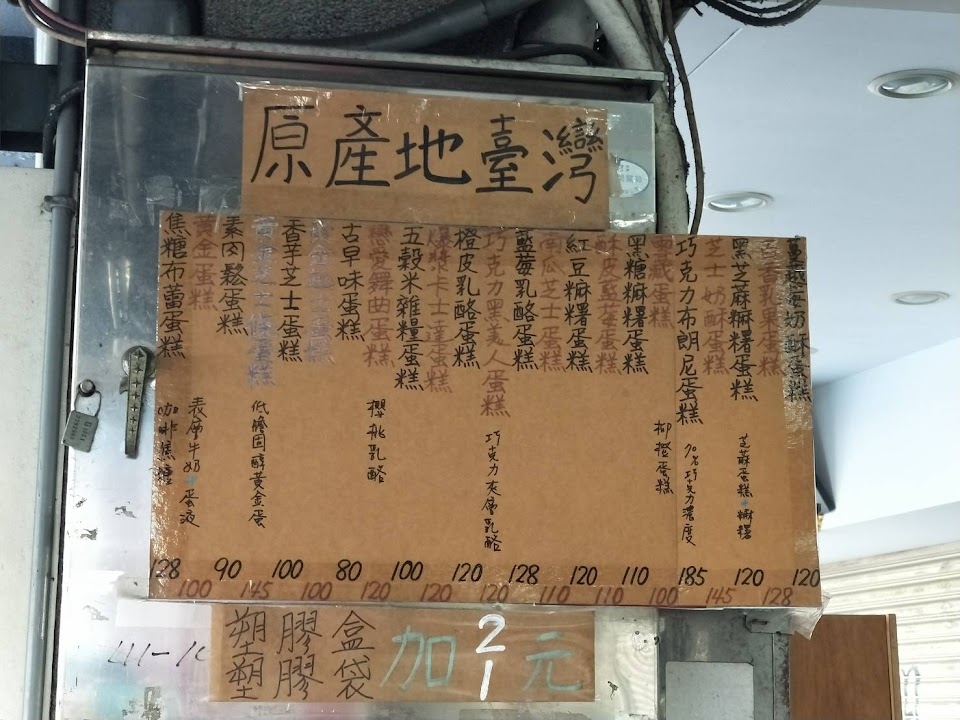 原產地臺灣
蔓越莓奶酥蛋糕
百香乳果蛋糕
黑芝麻麻糬蛋糕
芝士奶酥蛋糕
巧克力布朗尼蛋糕
寶藏蛋糕
黑糖麻糬蛋糕
酥皮藍莓蛋糕
紅豆麻糬蛋糕
南瓜芝士蛋糕
藍莓乳酪蛋糕
巧克力黑美人蛋糕
橙皮乳酪蛋糕
爆漿卡士達蛋糕
五穀米雜糧蛋糕
戀愛舞曲蛋糕
古早味蛋糕
香芋芝士蛋糕
素肉鬆蛋糕
黃金蛋糕
焦糖布蕾蛋糕
芝麻蛋糕+麻糬
70%巧克力濃度
柳橙蛋糕
巧克力夾層乳酪
櫻桃乳酪
低膽固醇黃金蛋
表層牛奶+蛋液
咖啡焦糖
128 90 100 80 100 120 128 120 110 185 120 120
100 145 100 120 120 120 110 110 100 145 128
塑膠盒加2元
塑膠袋加1元